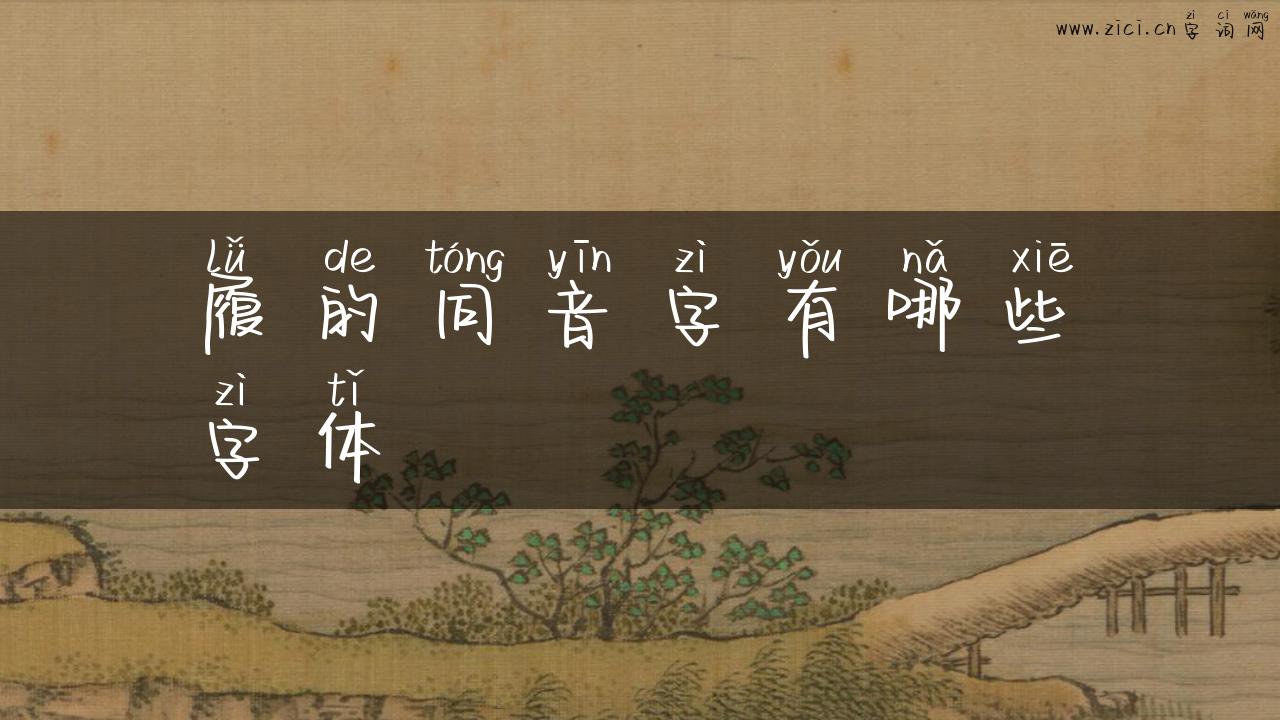 zì cí wǎng
www.zici.cn 字词网
lǚ de tóng yīn zì yǒu nǎ xiē
履的同音字有哪些
zì tǐ
字体